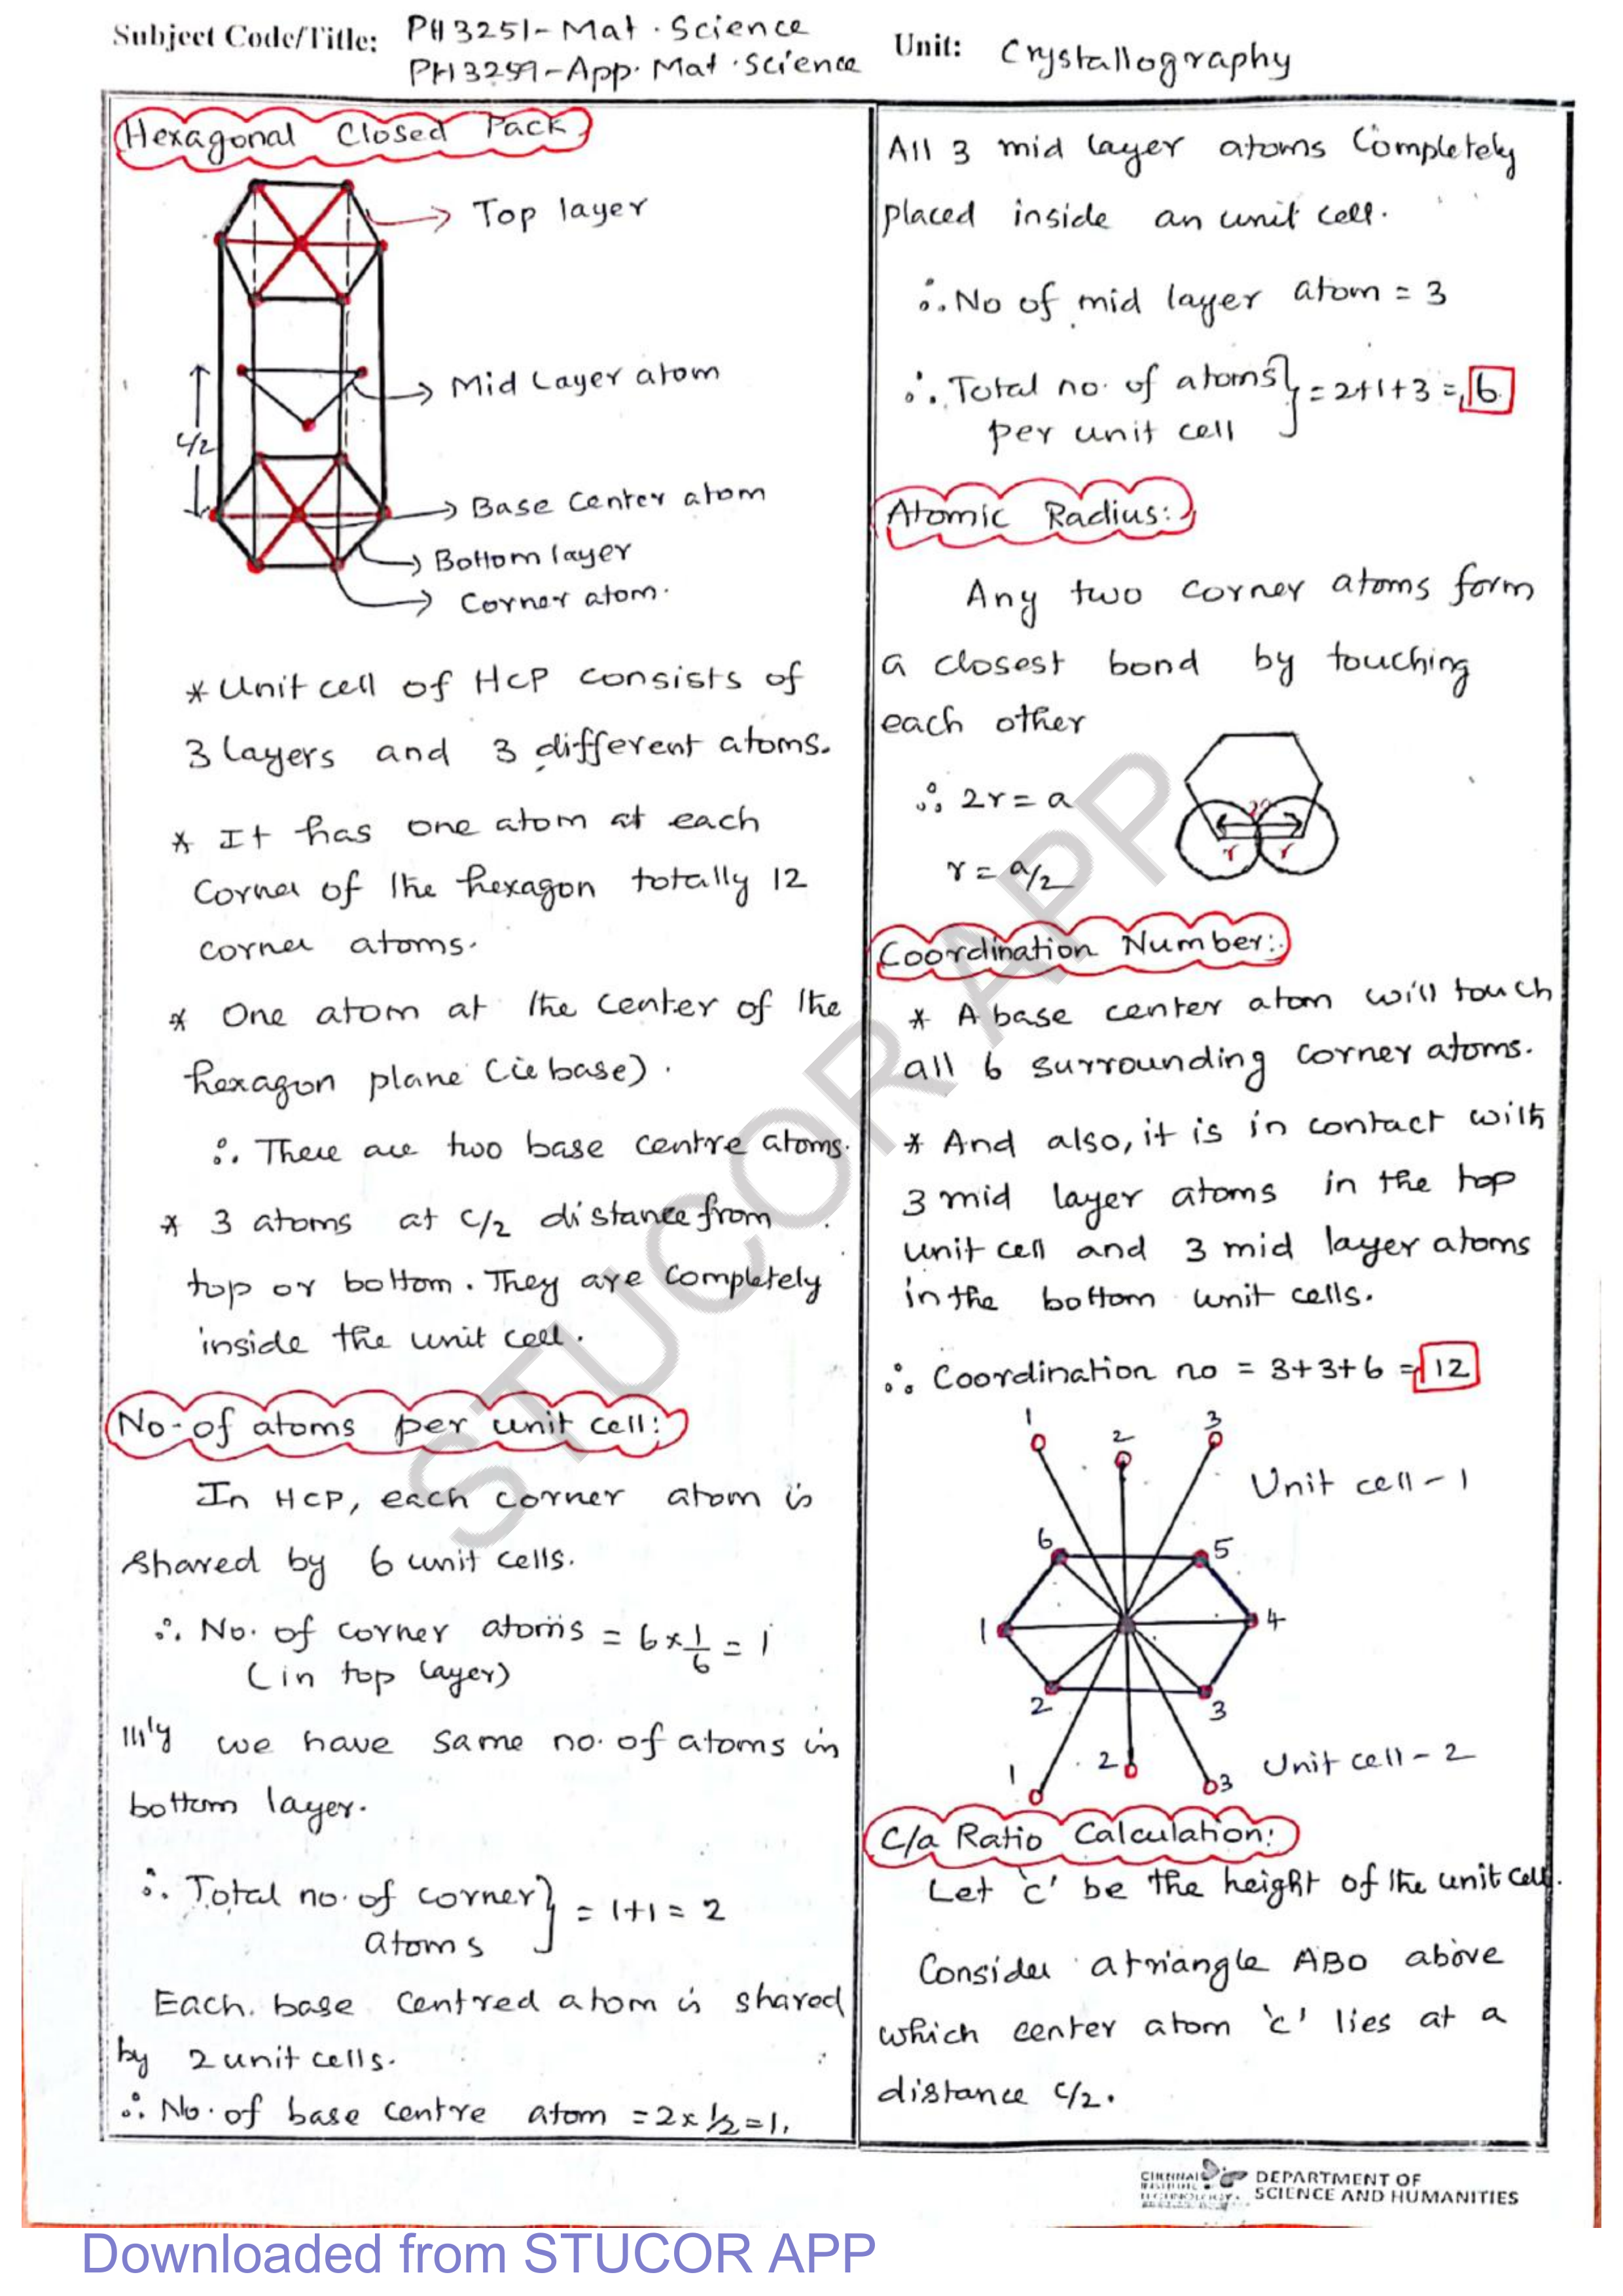 Subject Code/Title: PH3251-Mat.Science
PH3259-App.Mat.Science
Unit: Crystallography
Hexagonal Closed Pack
Top layer
Mid Layer atom
c/2
Base Center atom
Bottom layer
Corner atom.
* Unit cell of HCP consists of
3 layers and 3 different atoms.
* It has one atom at each
Corner of the hexagon totally 12
corner atoms.
* One atom at the center of the
hexagon plane (ie base).
∴ There are two base centre atoms.
* 3 atoms at c/2 distance from
top or bottom. They are completely
inside the unit cell.
No. of atoms per unit cell:
In HCP, each corner atom is
shared by 6 unit cells.
∴ No. of corner atoms = 6 x 1/6 = 1
(in top layer)
lllly we have same no. of atoms in
bottom layer.
∴ Total no. of corner } = 1+1 = 2
atoms
Each base centred atom is shared
by 2 unit cells.
∴ No. of base centre atom = 2 x 1/2 = 1.
All 3 mid layer atoms Completely
placed inside an unit cell.
∴ No of mid layer atom = 3
∴ Total no. of atoms } = 2+1+3 = 6
per unit cell
Atomic Radius:
Any two corner atoms form
a closest bond by touching
each other
∴ 2r = a
r = a/2
r r
Coordination Number:
* A base center atom will touch
all 6 surrounding corner atoms.
* And also, it is in contact with
3 mid layer atoms in the top
unit cell and 3 mid layer atoms
in the bottom unit cells.
∴ Coordination no = 3+3+6 = 12
1 2 3
Unit cell - 1
6 5
1 4
2 3
1 2 3
Unit cell - 2
C/a Ratio Calculation:
Let 'c' be the height of the unit cell.
Consider a triangle ABO above
which center atom 'c' lies at a
distance c/2.
STUCOR APP
DEPARTMENT OF
SCIENCE AND HUMANITIES
Downloaded from STUCOR APP